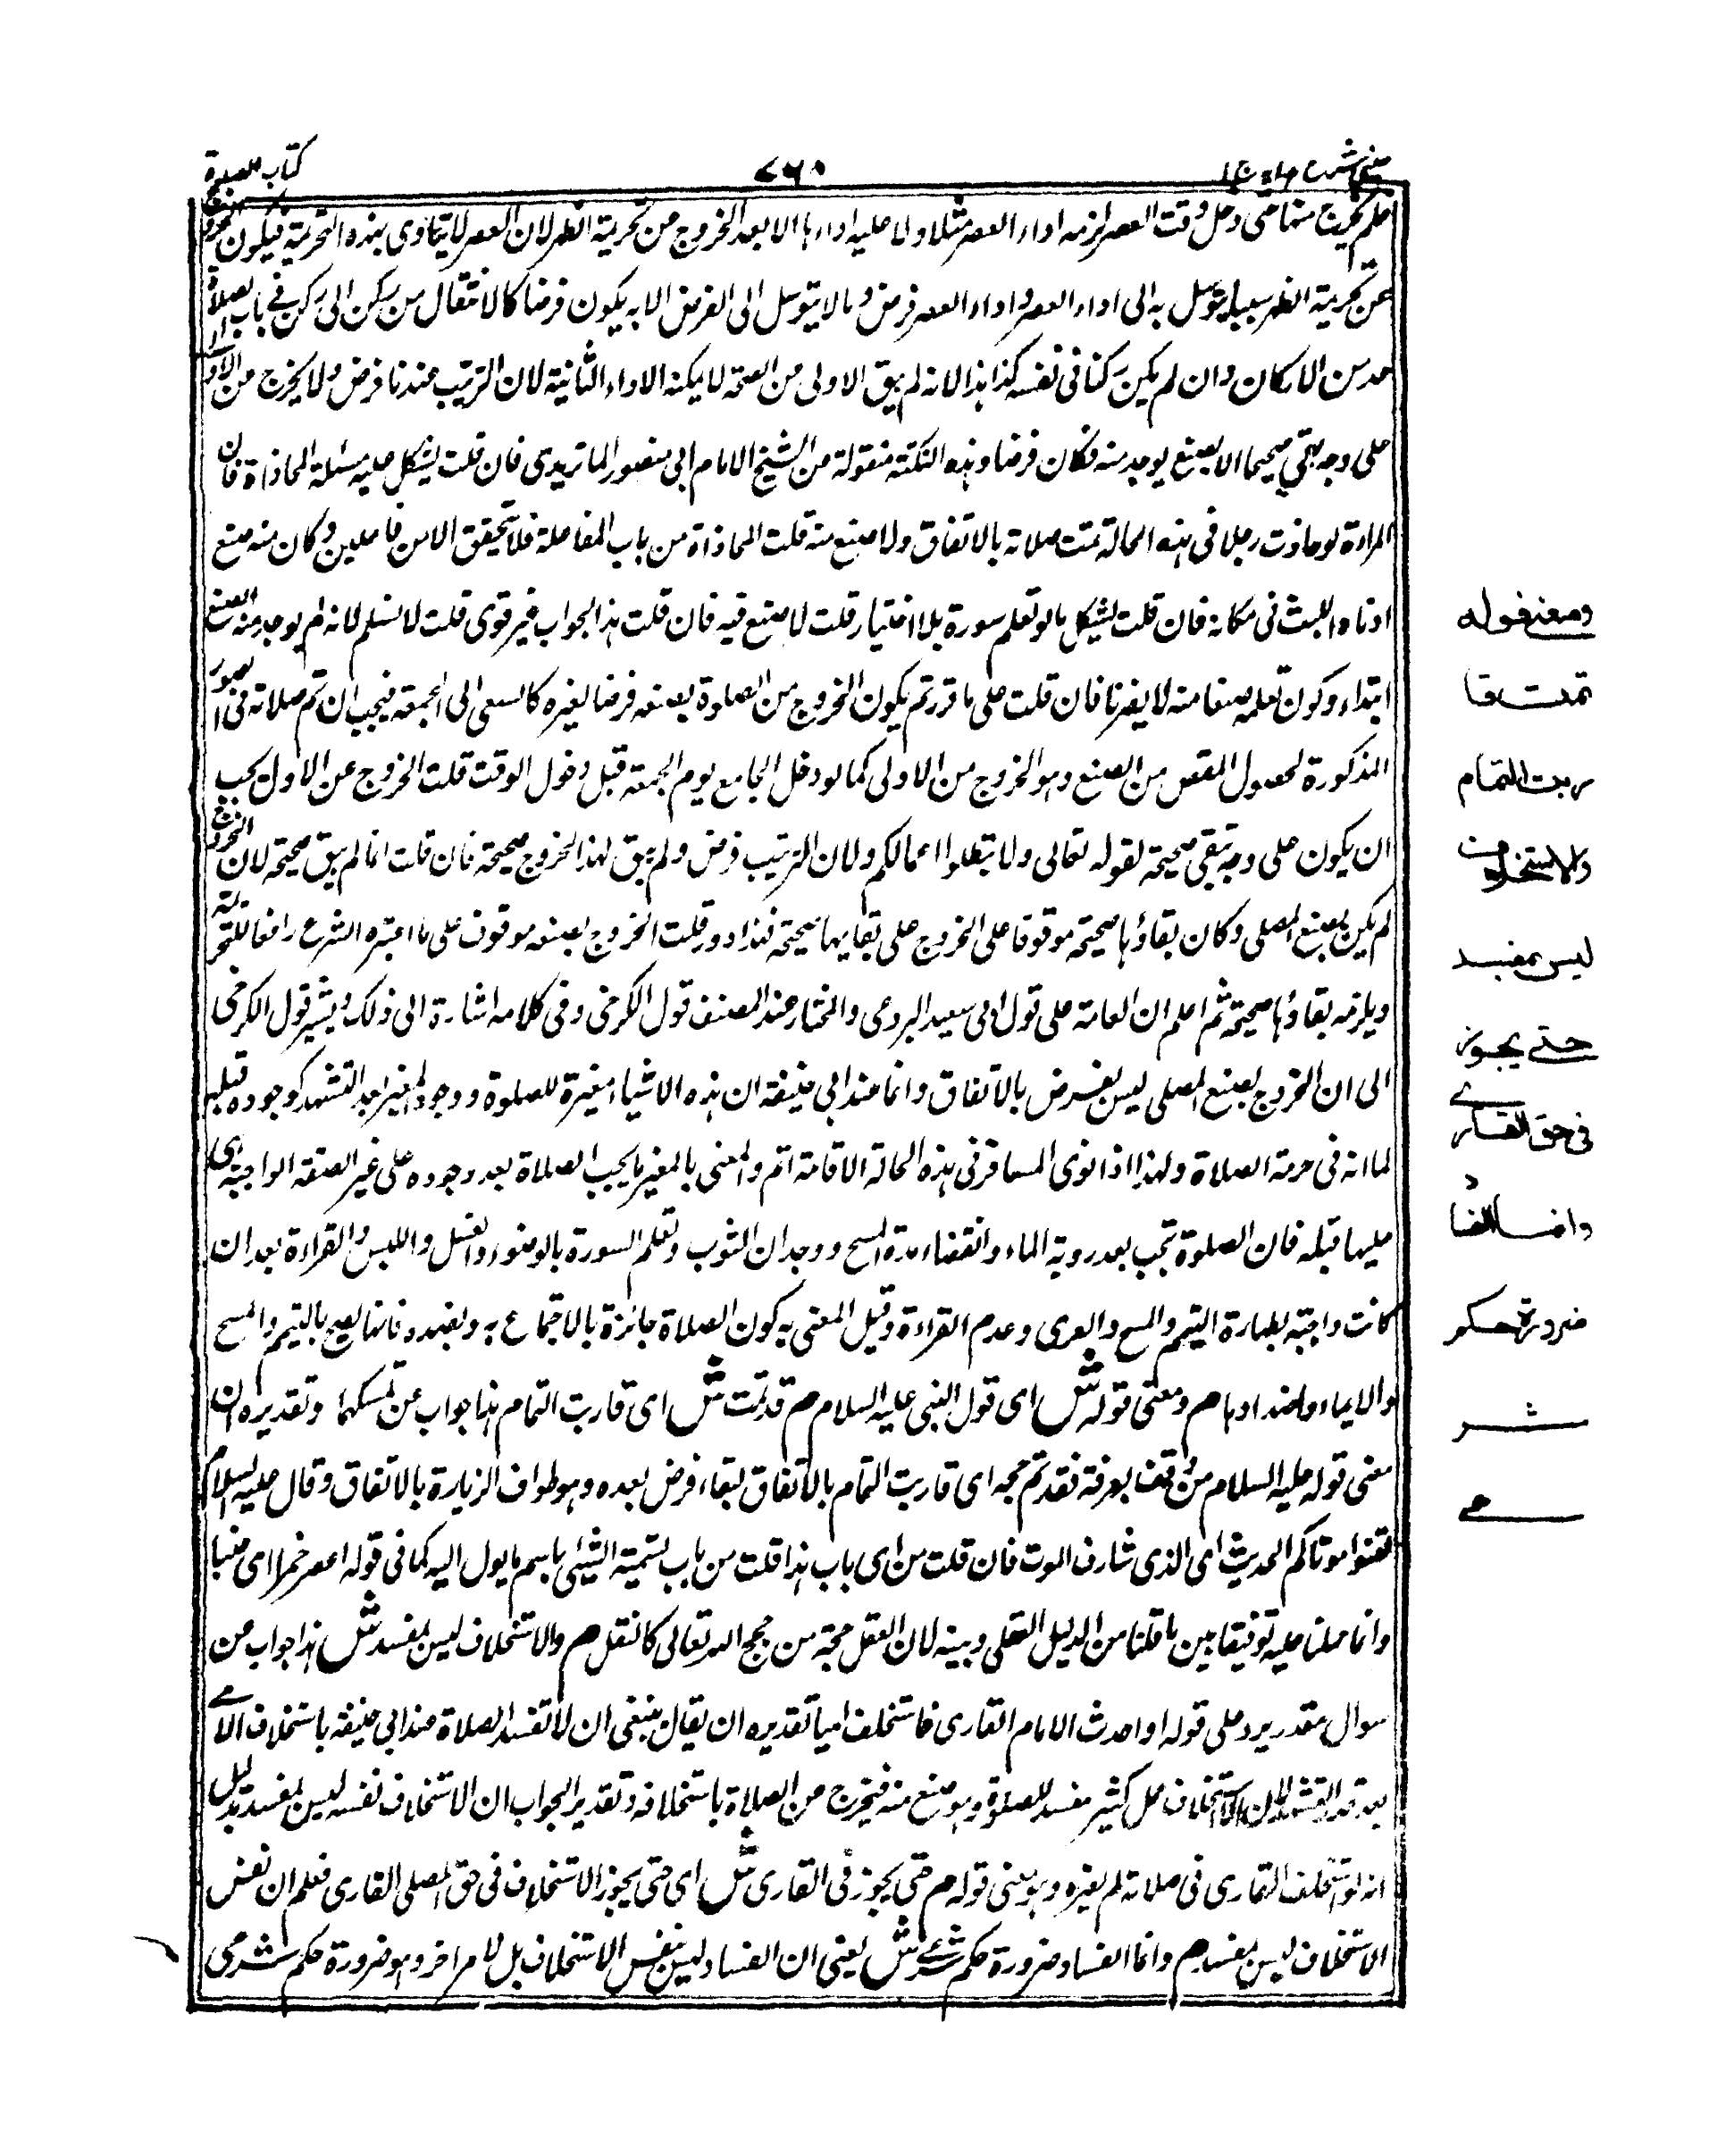 عينى شرح هداية ج ١
٧٦٠
كتاب الصلوة
فلم يخرج منها حتى دخل وقت العصر لزمه اداء العصر مثلا ولا عليه اداءها الا بعد الخروج من تحريمة الظهر لان العصر لا يتأدى بهذه التحريمة فيكون الخروج
عن تحريمة الظهر سببا يتوسل به الى اداء العصر واداء العصر فرض وما لا يتوسل الى الفرض الا به يكون فرضا كالانتقال من ركن الى ركن فى باب الصلاة
عد من الاركان وان لم يكن ركنا فى نفسه كذا هذا لانه لم يبق الاولى من الصحة لا يمكنه الاداء الثانية لان الترتيب عندنا فرض ولا يخرج من الاولى
على وجه يبقى صحيحا الا بصنع يوجد منه فكان فرضا وهذه النكتة منقولة من الشيخ الامام ابى منصور الماتريدى فان قلت يشكل عليه مسئلة المحاذاة فان
المراءة لو حاذت رجلا فى هذه الحالة تمت صلاته بالاتفاق ولا صنع منه قلت المحاذاة من باب المفاعلة فلا تتحقق الا من فاعلين وكان منه صنع
ادناه اللبث فى مكانه فان قلت يشكل بما لو تعلم سورة بلا اختيار قلت لا صنع فيه فان قلت هذا الجواب غير قوى قلت لا نسلم لانه لم يوجد منه الصنع
ابتداء وكون تعلمه صنعا منه لا يضرنا فان قلت على ما قررتم يكون الخروج من الصلوة بصنعه فرضا لغيره كالسعى الى الجمعة فيجب ان تتم صلاته فى الصور
المذكورة لحصول المقص من الصنع وهو الخروج من الاولى كما لو دخل الجامع يوم الجمعة قبل دخول الوقت قلت الخروج عن الاولى يجب
ان يكون على وجه تبقى صحيحة لقوله تعالى ولا تبطلوا اعمالكم ولان الترتيب فرض ولم يبق لهذا الخروج صحيحة فان قلت انما لم يبق صحيحة لان الخروج
لم يكن بصنع المصلى وكان بقاؤها صحيحة موقوفا على الخروج على بقايها صحيحة فهذا دور قلت الخروج بصنعه موقوف على ما اعتبره الشرع رافعا للتحريمة
ويلزمه بقاؤها صحيحة ثم اعلم ان العامة على قول ابى سعيد البردعى والمختار عند المصنف قول الكرخى وفى كلامه اشارة الى ذلك ويشير قول الكرخى
الى ان الخروج بصنع المصلى ليس بفرض بالاتفاق وانما عند ابى حنيفة ان هذه الاشياء مغيرة للصلوة ووجود المغير بعد التشهد كوجوده قبله
لما انه فى حرمة الصلاة ولهذا اذا نوى المسافر فى هذه الحالة الاقامة اتم والمعنى بالمغير ما يجب الصلاة بعد وجوده على غير الصفة الواجبة هى
عليها قبله فان الصلوة تجب بعد روية الماء وانقضاء مدة المسح ووجدان الثوب وتعلم السورة بالوضوء والغسل واللبس والقراءة بعد ان
كانت واجبة بطهارة التيمم والمسح والعرى وعدم القراءة وقيل المعنى به كون الصلاة جائزة بالاجتماع به وبضده فانها يصح بالتيمم والمسح
والايماء واضدادها م ومعنى قوله ش اى قول النبى عليه السلام م قد تمت ش اى قاربت التمام هذا جواب عن تمسكهما وتقديره ان
معنى قوله عليه السلام من وقف بعرفة فقد تم حجه اى قاربت التمام بالاتفاق لبقاء فرض بعده وهو طواف الزيارة بالاتفاق وقال عليه السلام
لقنوا موتاكم الحديث اى الذى شارف الموت فان قلت من اى باب هذا قلت من باب تسمية الشيئ باسم ما يول اليه كما فى قوله اعصر خمرا اى عنبا
وانما حملنا عليه توفيقا بين ما قلنا من الدليل العقلى وبينه لان العقل حجة من حجج الله تعالى كالنقل م والاستخلاف ليس بمفسد ش هذا جواب عن
سوال مقدر يرد على قوله او احدث الامام القارى فاستخلف اميا تقديره ان يقال ينبغى ان لا تفسد الصلاة عند ابى حنيفة باستخلاف الامى
بعد قدر التشهد لان الاستخلاف عمل كثير مفسد للصلوة وهو صنع منه فيخرج من الصلاة باستخلافه وتقدير الجواب ان الاستخلاف نفسه ليس بمفسد بدليل
انه لو استخلف القارى فى صلاته لم يغيره وهو معنى قوله م حتى يجوز فى القارى ش اى حتى يجوز الاستخلاف فى حق المصلى القارى فعلم ان نفس
الاستخلاف ليس بمفسد م وانما الفساد ضرورة حكم شرعى ش يعنى ان الفساد ليس بنفس الاستخلاف بل لامر اخر وهو ضرورة حكم شرعى
ومعنى قوله
تمت قا
ربت التمام
والاستخلاف
ليس بمفسد
حتى يجوز
فى حق القارى
وانما الفسا
د
ضرورة حكم
شر
عى